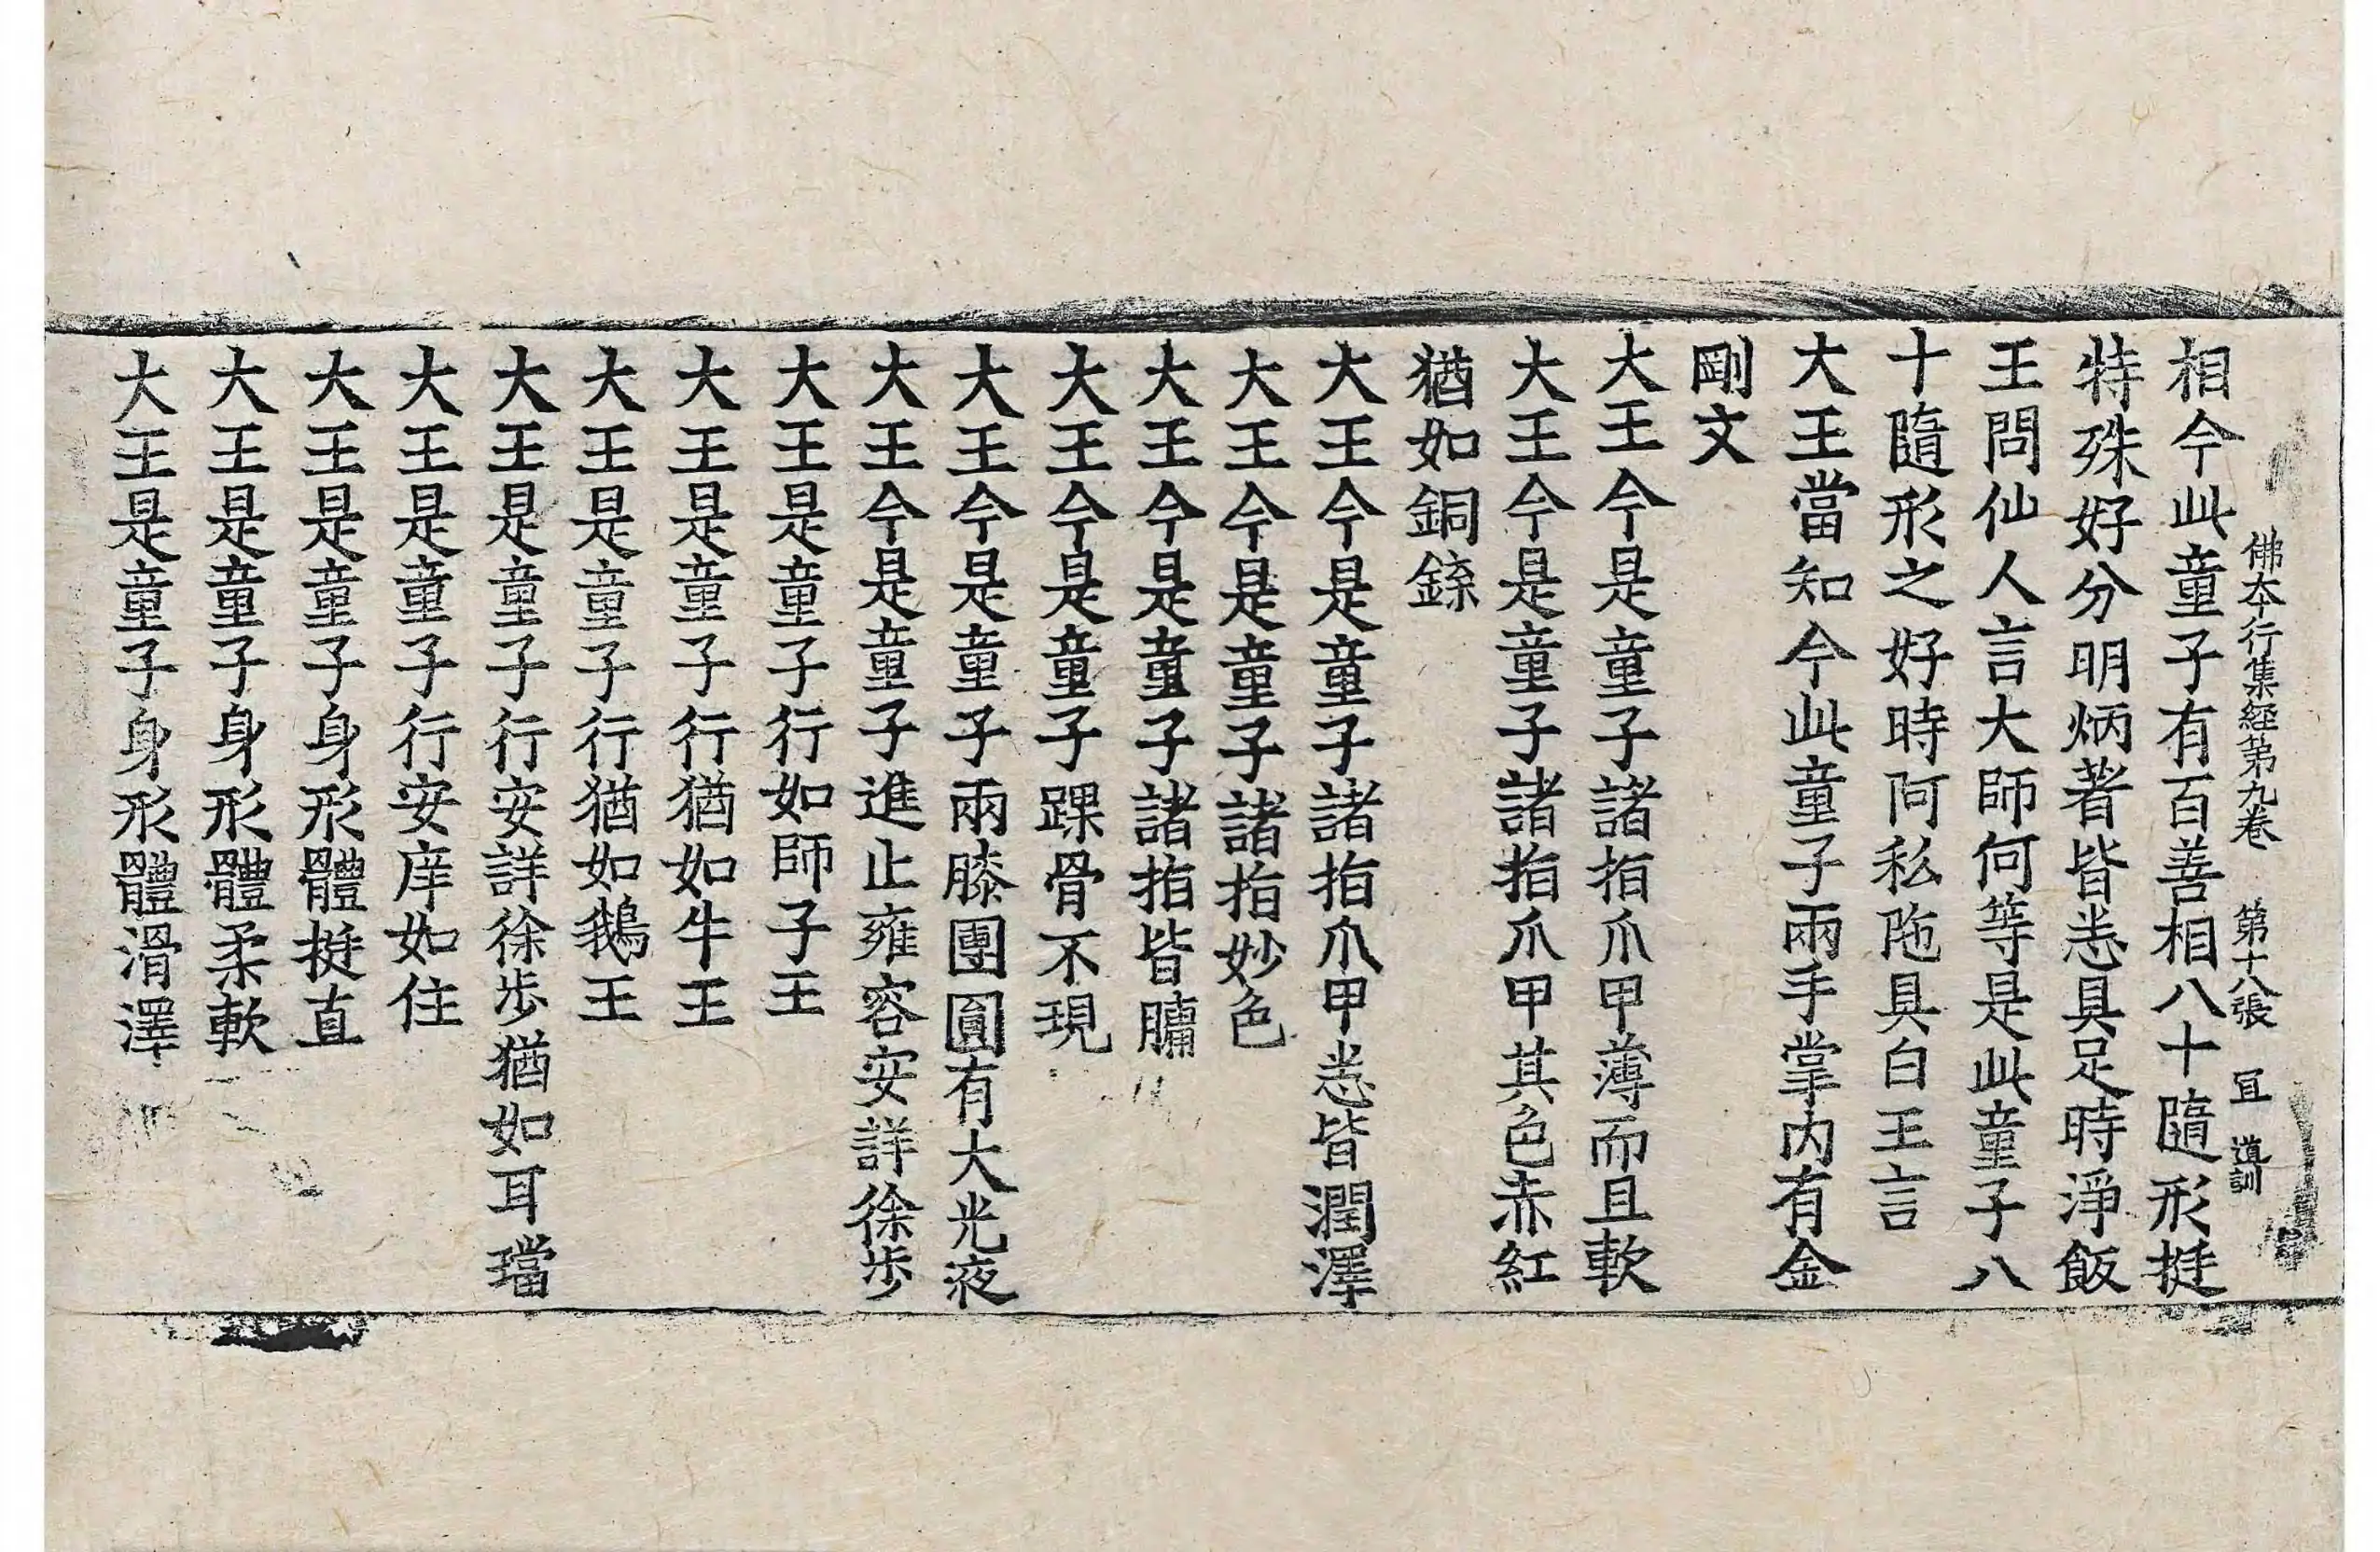 佛本行集経第九卷 第十八張 冝 道訓
相今此童子有百善相八十隨形挺
特殊好分明炳著皆悉具足時淨飯
王問仙人言大師何等是此童子八
十隨形之好時阿私陁具白王言
大王當知今此童子兩手掌内有金
剛文
大王今是童子諸指爪甲薄而且軟
大王今是童子諸指爪甲其色赤紅
猶如銅鍒
大王今是童子諸指爪甲悉皆潤澤
大王今是童子諸指妙色
大王今是童子諸指皆𦟛
大王今是童子踝骨不現
大王今是童子兩膝團圓有大光液
大王今是童子進止雍容安詳徐步
大王是童子行如師子王
大王是童子行猶如牛王
大王是童子行猶如鵝王
大王是童子行安詳徐步猶如耳璫
大王是童子行安庠如住
大王是童子身形體挺直
大王是童子身形體柔軟
大王是童子身形體滑澤